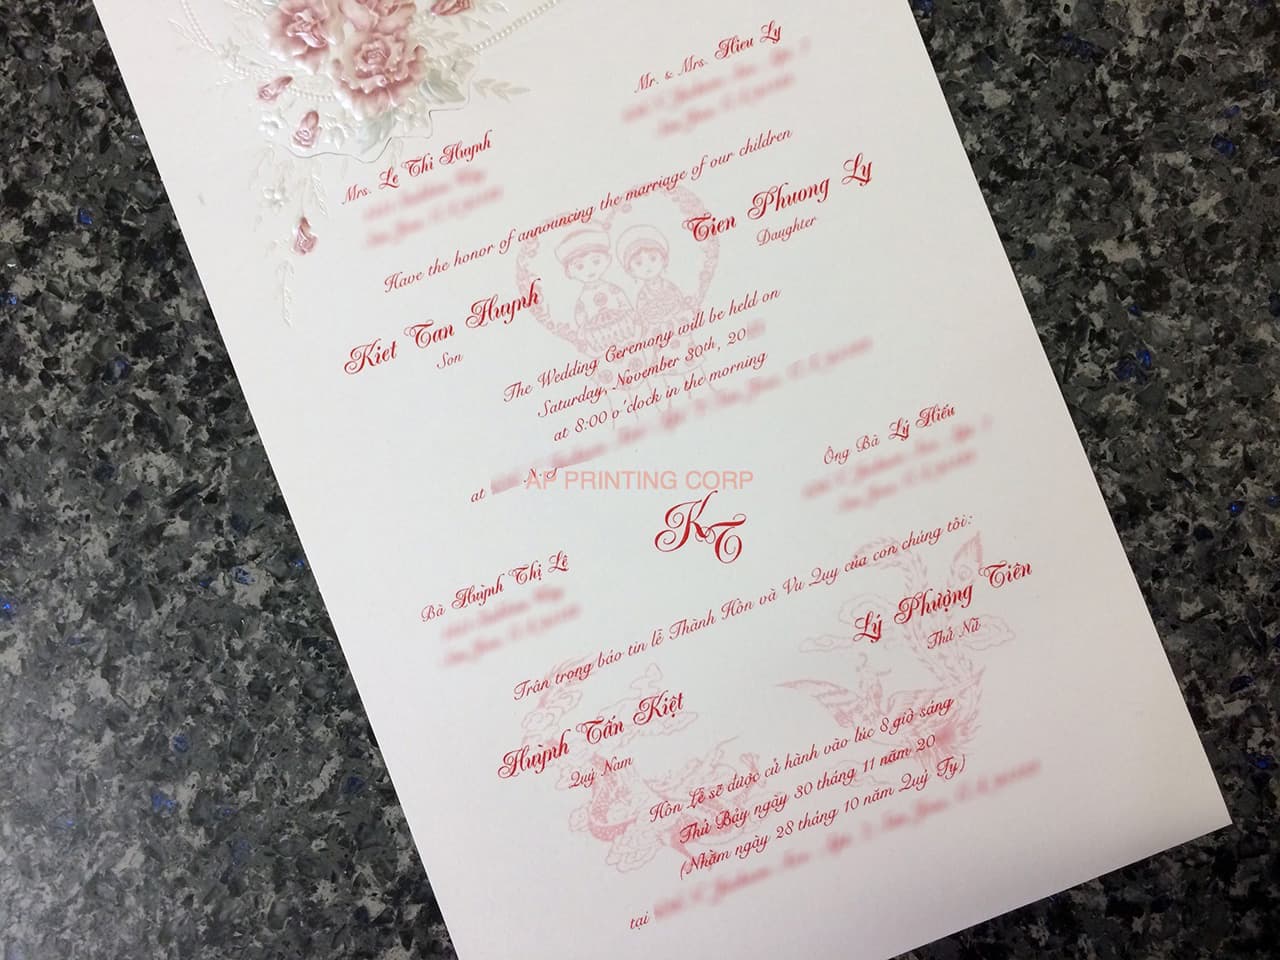 Mr. & Mrs. Hieu Ly
Mrs. Le Thi Huynh
Have the honor of announcing the marriage of our children
Tien Phuong Ly
Daughter
Kiet Tan Huynh
Son
The Wedding Ceremony will be held on
Saturday, November 30th, 20
at 8:00 o'clock in the morning
at
AP PRINTING CORP
KT
Ông Bà Lý Hiếu
Bà Huỳnh Thị Lê
Trân trọng báo tin lễ Thành Hôn và Vu Quy của con chúng tôi:
Lý Phượng Tiên
Thứ Nữ
Huỳnh Tấn Kiệt
Quý Nam
Hôn Lễ sẽ được cử hành vào lúc 8 giờ sáng
Thứ Bảy ngày 30 tháng 11 năm 20
(Nhằm ngày 28 tháng 10 năm Quý Tỵ)
tại